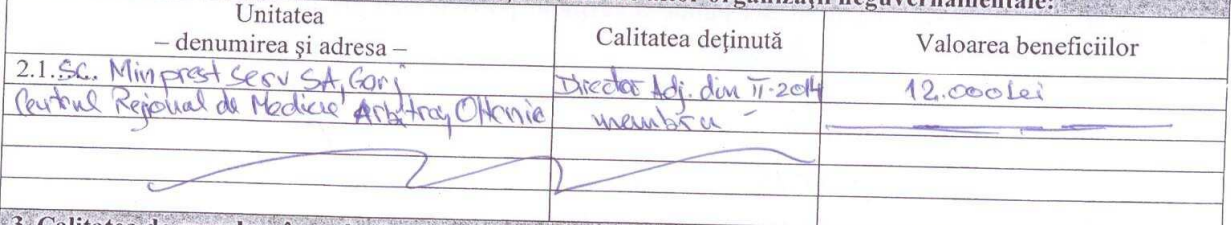 organizații neguvernamentale:
Unitatea
– denumirea și adresa –
Calitatea deținută
Valoarea beneficiilor
2.1. SC. Minprest Serv SA, Gorj
Director Adj. din II-2014
12.000 Lei
Centrul Regional de Mediere Arbitraj Oltenia
membru
3. Calitatea de